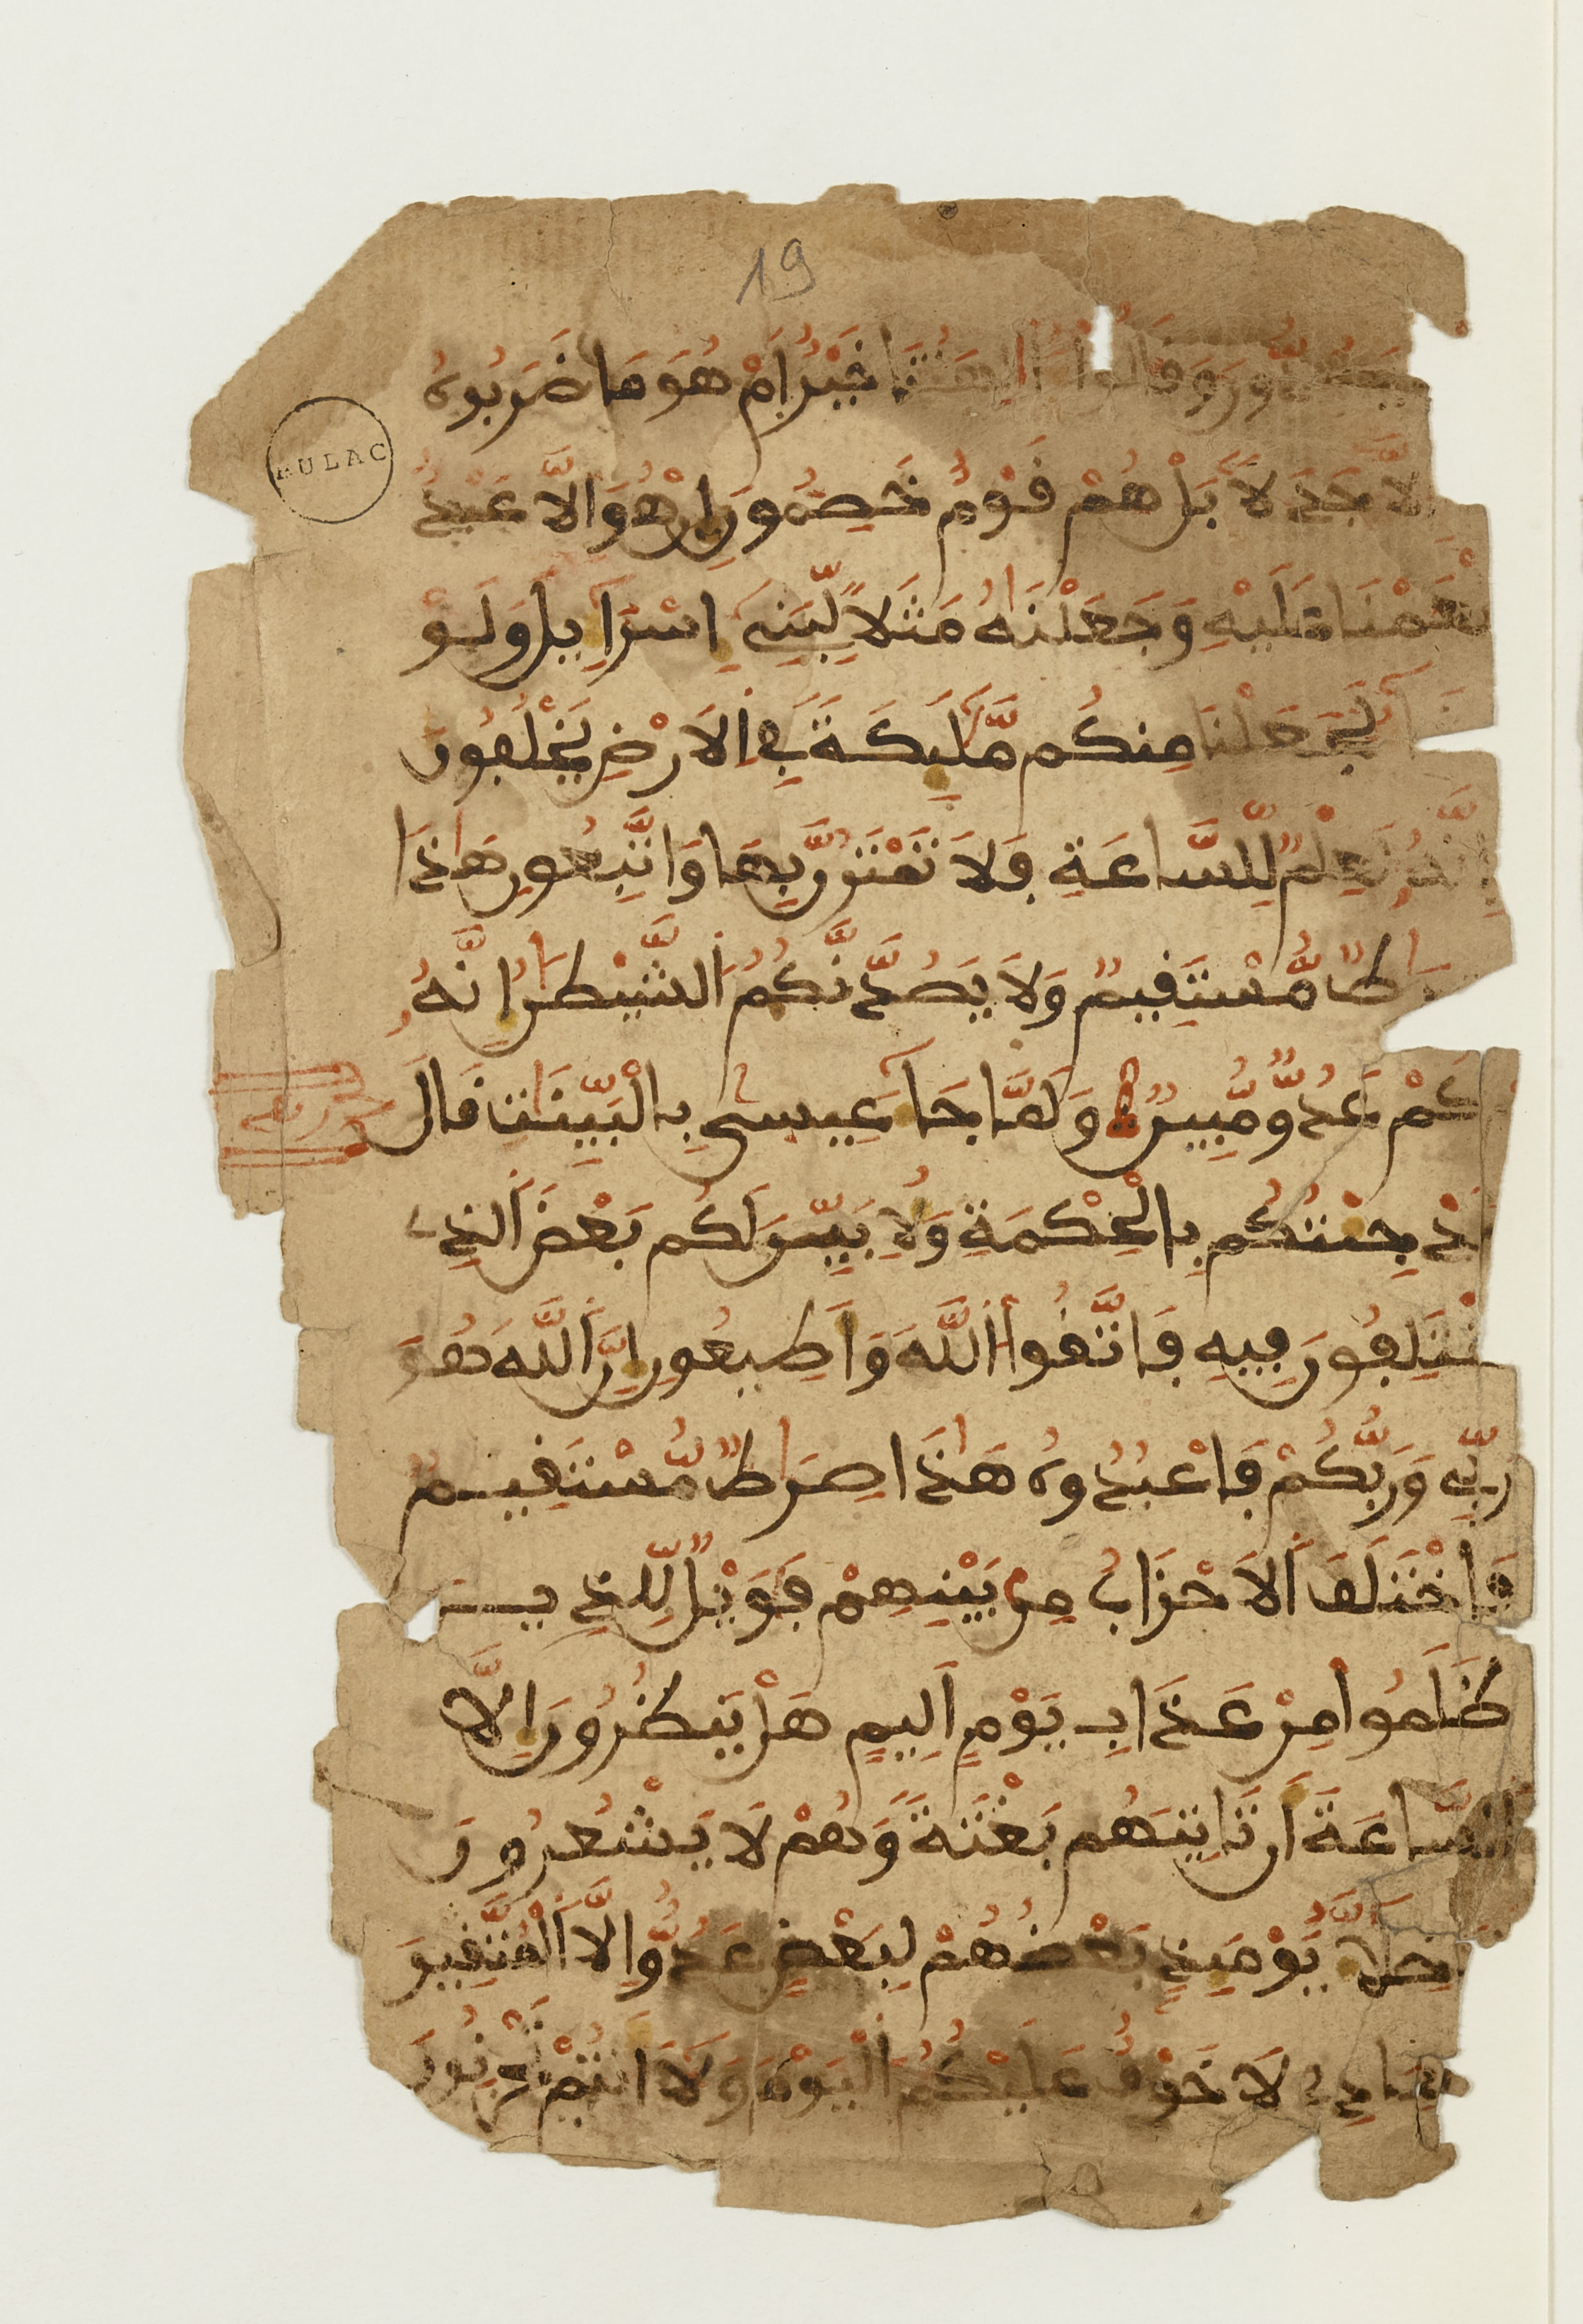 19
يَصُدُّونَ وَقَالُوا ءَالِهَتُنَا خَيْرٌ اَمْ هُوَ مَا ضَرَبُوهُ
BULAC
إِلَّا جَدَلَا بَلْ هُمْ قَوْمٌ خَصِمُونَ إِنْ هُوَ إِلَّا عَبْدٌ
نْعَمْنَا عَلَيْهِ وَجَعَلْنَٰهُ مَثَلًا لِّبَنِي إِسْرَآءِيلَ وَلَوْ
لَجَعَلْنَا مِنكُم مَّلَٰٓئِكَةً فِي اِلَارْضِ يَخْلُفُونَ
إِنَّهُ لَعِلْمٌ لِّلسَّاعَةِ فَلَا تَمْتَرُنَّ بِهَا وَاتَّبِعُونِ هَٰذَا
رَٰطٌ مُّسْتَقِيمٌ وَلَا يَصُدَّنَّكُمُ اُلشَّيْطَٰنُ إِنَّهُ
كُمْ عَدُوٌّ مُّبِينٌ وَلَمَّا جَآءَ عِيسىٰ بِالْبَيِّنَٰتِ قَالَ
قَدْ جِئْتُكُم بِالْحِكْمَةِ وَلِأُبَيِّنَ لَكُم بَعْضَ اَلذِي
تَخْتَلِفُونَ فِيهِ فَاتَّقُوا اُللَّهَ وَأَطِيعُونِ إِنَّ اَللَّهَ هُوَ
رَبِّي وَرَبُّكُمْ فَاعْبُدُوهُ هَٰذَا صِرَٰطٌ مُّسْتَقِيمٌ
فَاخْتَلَفَ اَلَاحْزَابُ مِنۢ بَيْنِهِمْ فَوَيْلٌ لِّلذِينَ
ظَلَمُوا مِنْ عَذَابِ يَوْمٍ اَلِيمٍ هَلْ يَنظُرُونَ إِلَّا
اَلسَّاعَةَ أَن تَاتِيَهُم بَغْتَةً وَهُمْ لَا يَشْعُرُونَ
اَلَاخِلَّآءُ يَوْمَئِذٍۭ بَعْضُهُمْ لِبَعْضٍ عَدُوٌّ إِلَّا اَلْمُتَّقِينَ
يَٰعِبَادِي لَا خَوْفٌ عَلَيْكُمُ اُلْيَوْمَ وَلَا أَنتُمْ تَحْزَنُونَ